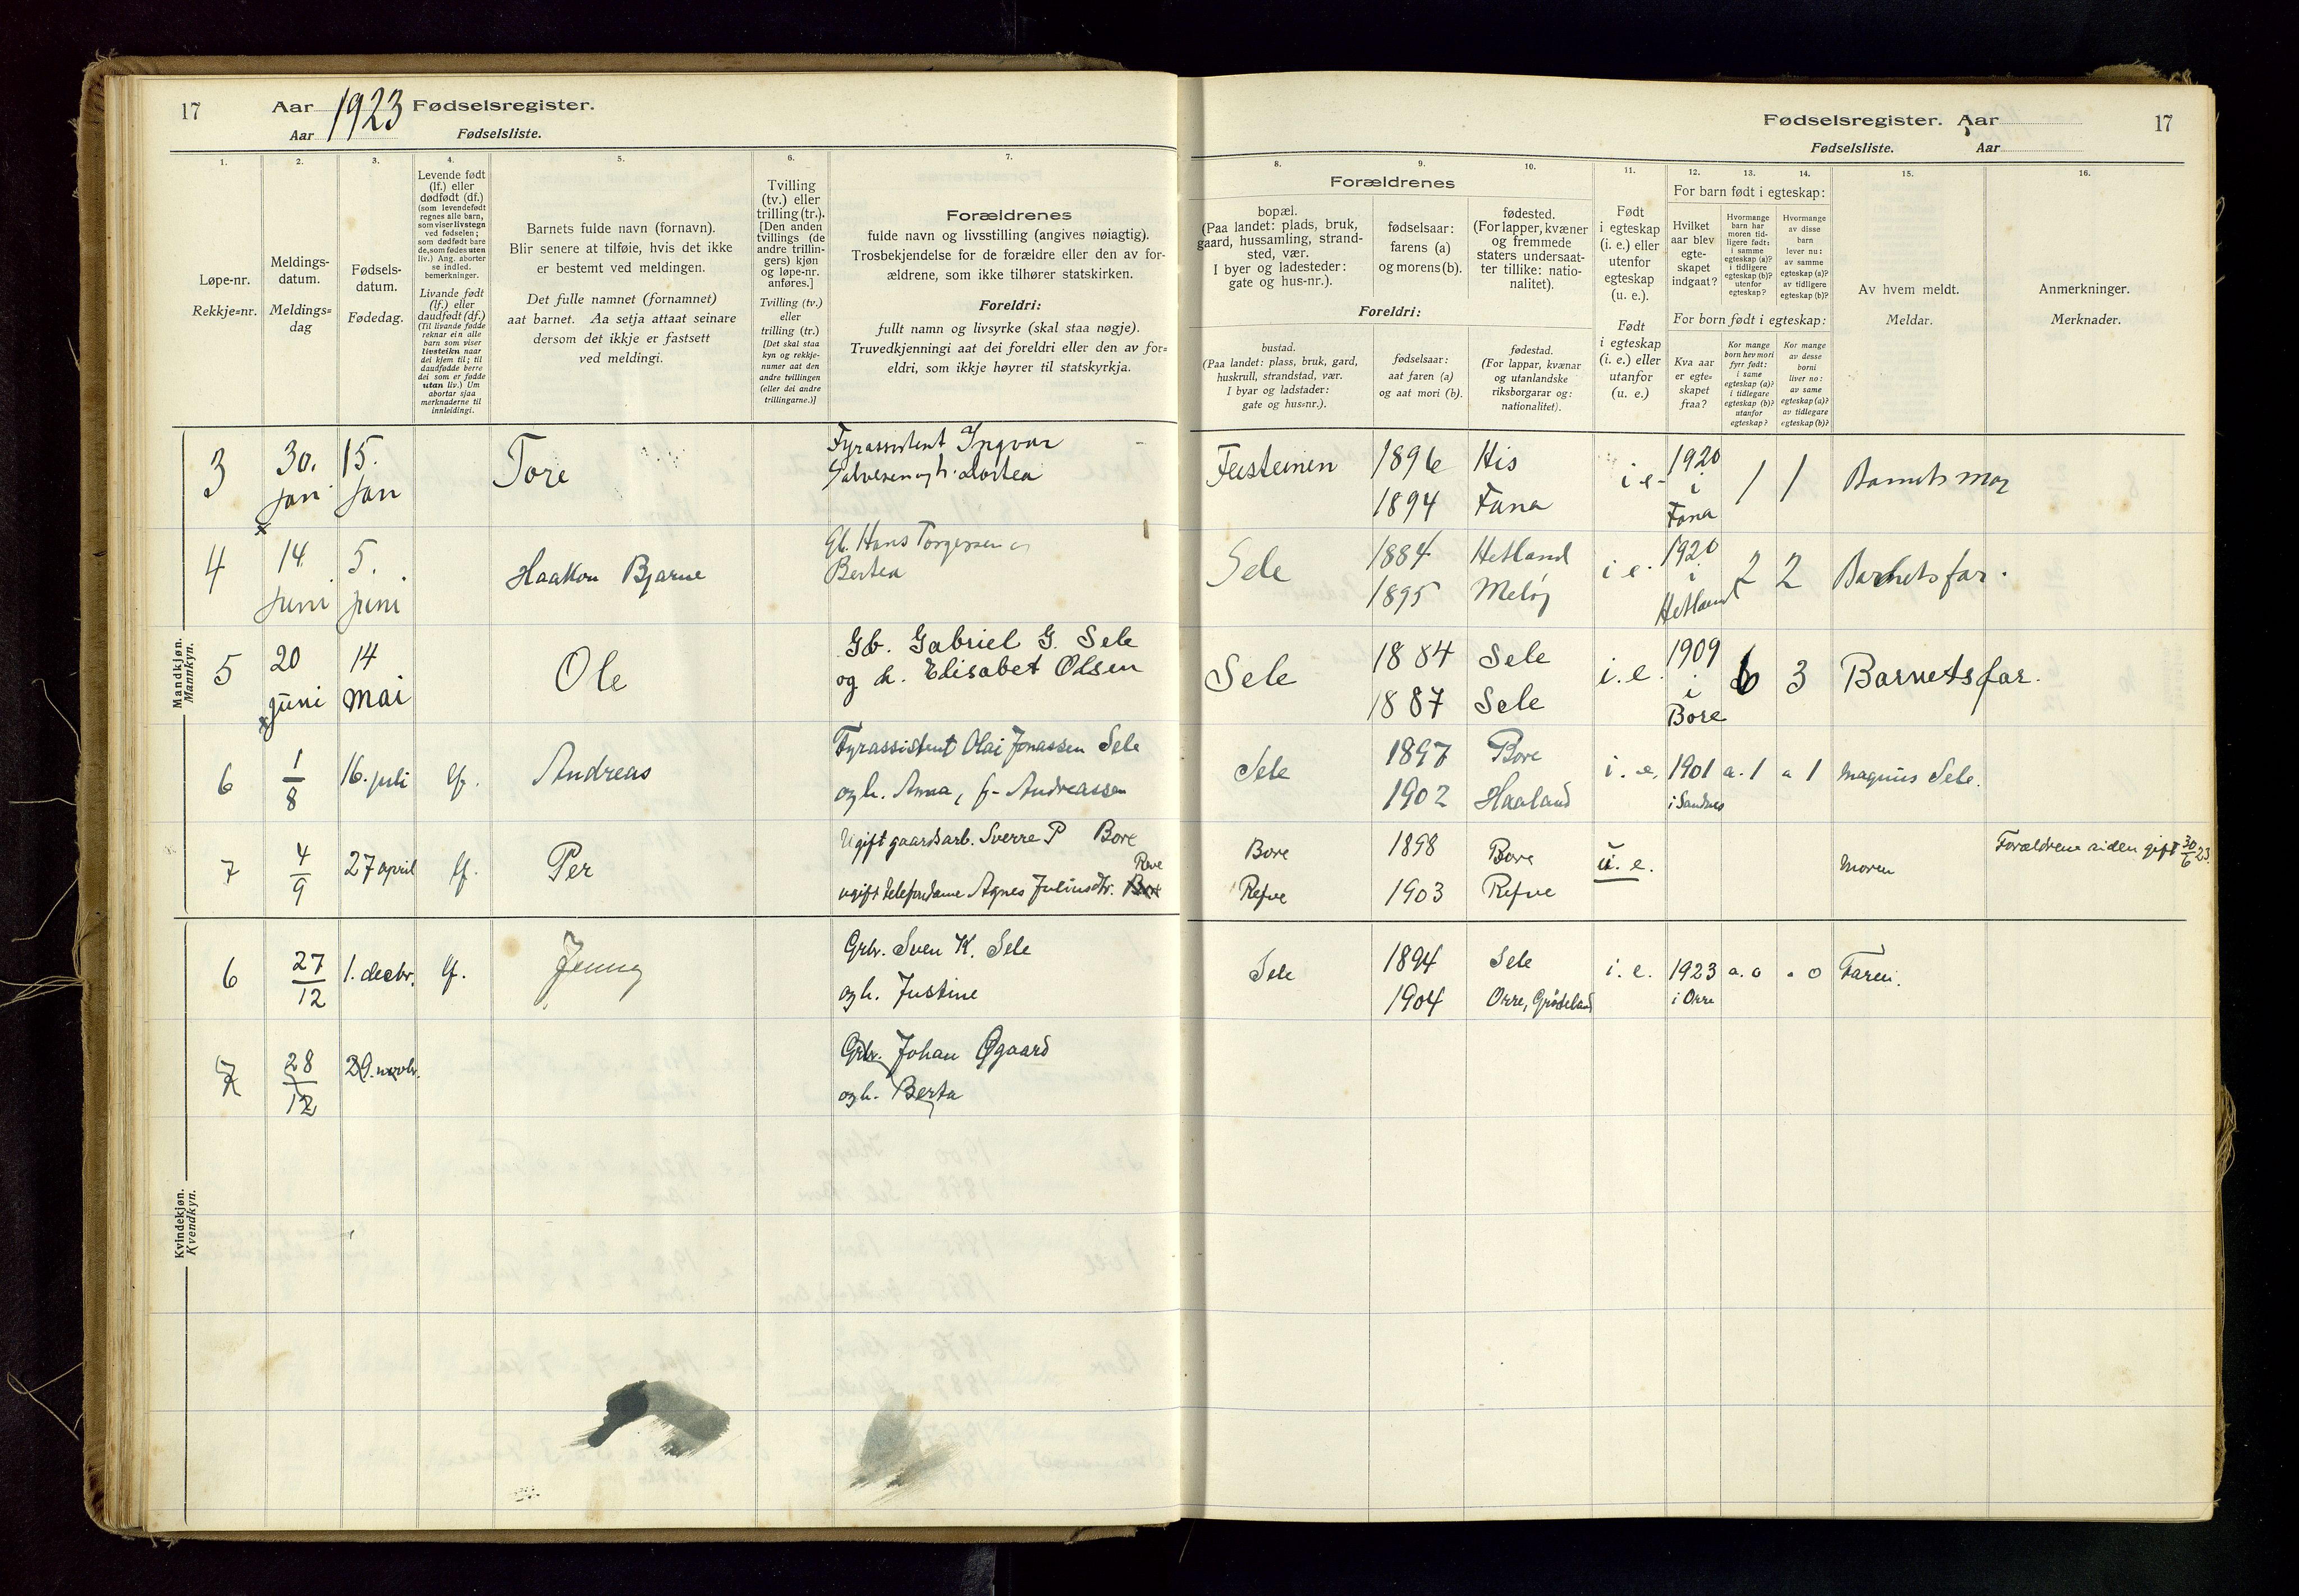 17 Aar 1923 Fødselsregister.
Aar Fødselsliste.
1. 2. 3. 4. 5. 6. 7.
Løpe-nr.
Rekkje=nr.
Meldings-
datum.
Meldings=
dag
Fødsels-
datum.
Fødedag.
Levende født
(lf.) eller
dødfødt (df.)
(som levendefødt
regnes alle barn,
som viser livstegn
ved fødselen;
som dødfødt bare
de, som fødes uten
liv.) Ang. aborter
se indled.
bemerkninger.
Livande født
(lf.) eller
daudfødt (df.)
(Til livande fødde
reknar ein alle
barn som viser
livsteikn naar
dei kjem til; til
daudfødde berre
dei som er fødde
utan liv.) Um
abortar sjaa
merknaderne til
innleidingi.
Barnets fulde navn (fornavn).
Blir senere at tilføie, hvis det ikke
er bestemt ved meldingen.
Det fulle namnet (fornamnet)
aat barnet. Aa setja attaat seinare
dersom det ikkje er fastsett
ved meldingi.
Tvilling
(tv.) eller
trilling (tr.).
[Den anden
tvillings (de
andre trillin-
gers) kjøn
og løpe-nr.
anføres.]
Tvilling (tv.)
eller
trilling (tr.)
[Det skal staa
kyn og rekkje-
numer aat den
andre tvillingen
(eller dei andre
trillingarne.)]
Forældrenes
fulde navn og livsstilling (angives nøiagtig).
Trosbekjendelse for de forældre eller den av for-
ældrene, som ikke tilhører statskirken.
Foreldri:
fullt namn og livsyrke (skal staa nøgje).
Truvedkjenningi aat dei foreldri eller den av for=
eldri, som ikkje høyrer til statskyrkja.
Mandkjøn.
Mannkyn.
3 30. jan 15. jan Tore Fyrassistent Ingvar
Salvesen og h. Dortea
4 14. juni 5. juni Haakon Bjarne Gb. Hans Torgersen og
Bertea
5 20 juni 14 mai Ole Gb. Gabriel G. Sele
og h. Elisabet Olsen
6 1/8 16. juli lf. Andreas Fyrassistent Olai Jonassen Sele
og h. Anna, f. Andreassen
7 4/9 27 april lf. Per Ugift gaardsarb. Sverre P Bore
Reve
ugift telefondame Agnes Juliusdtr. Bore
Kvindekjøn.
Kvendkyn.
6 27/12 1. decbr. lf. Jenny Grbr. Sven K. Sele
og h. Justine
7 28/12 29. novbr. Grbr. Johan Øgaard
og h. Berta
Fødselsregister. Aar 17
Fødselsliste. Aar
8. 9. 10. 11. 12. 13. 14. 15. 16.
Forældrenes
bopæl.
(Paa landet: plads, bruk,
gaard, hussamling, strand-
sted, vær.
I byer og ladesteder:
gate og hus-nr.).
fødselsaar:
farens (a)
og morens (b).
fødested.
(For lapper, kvæner
og fremmede
staters undersaat-
ter tillike: natio-
nalitet).
Foreldri:
bustad.
(Paa landet: plass, bruk, gard,
huskrull, strandstad, vær.
I byar og ladstader:
gate og hus=nr.).
fødselsaar:
aat faren (a)
og aat mori (b).
fødestad.
(For lappar, kvænar
og utanlandske
riksborgarar og:
nationalitet).
Født
i egteskap
(i. e.) eller
utenfor
egteskap
(u. e.).
Født
i egteskap
(i. e.) eller
utanfor
(u. e.)
For barn født i egteskap:
Hvilket
aar blev
egte-
skapet
indgaat?
Hvormange
barn har
moren tid-
ligere født:
i samme
egteskap (a)?
i tidligere
egteskap (b)?
utenfor
egteskap?
Hvormange
av disse
barn
lever nu:
av samme
egteskap (a)?
av tidligere
egteskap (b)?
For born født i egteskap:
Kva aar
er egte=
skapet
fraa?
Kor mange
born hev mori
fyrr født:
i same
egteskap (a)?
i tidlegare
egteskap (b)?
utanfor
egteskap?
Kor mange
av desse
borni
liver no:
av same
egteskap (a)?
av tidlegare
egteskap (b)?
Av hvem meldt.
Meldar.
Anmerkninger.
Merknader.
Feisteinen 1896 His i. e. 1920 i Fana 1 1 Barnets mor
1894 Fana
Sele 1884 Hetland i e. 1920 i Hetland 2 2 Barnets far.
1895 Meløy
Sele 1884 Sele i. e. 1909 i Bore 6 3 Barnets far.
1887 Sele
Sele 1897 Bore i. e. 1901 a. 1 a 1 Magnus Sele.
1902 Haaland i Sandnes
Bore 1898 Bore u. e. Moren Forældrene siden gift 30/6 23.
Refve 1903 Refve
Sele 1894 Sele i. e. 1923 a. 0 . 0 Faren.
1904 Orre, Grødeland i Orre